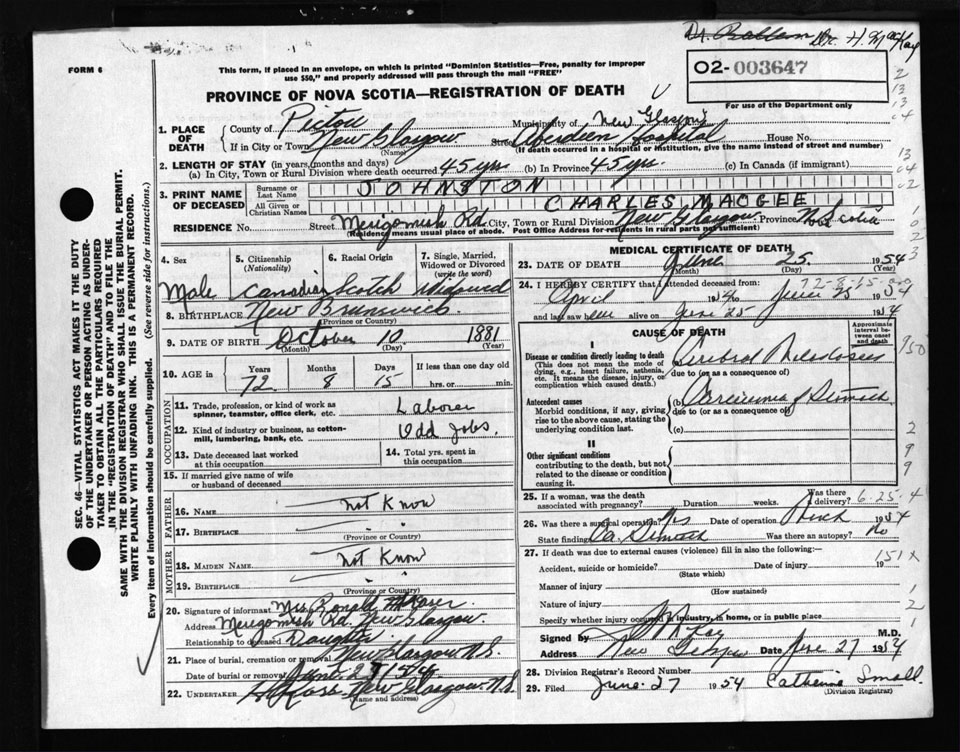 Dr. H. MacKay
FORM 6
This form, if placed in an envelope, on which is printed "Dominion Statistics—Free, penalty for improper
use $50," and properly addressed will pass through the mail "FREE"
02-003647
For use of the Department only
PROVINCE OF NOVA SCOTIA—REGISTRATION OF DEATH
1. PLACE OF DEATH
County of Pictou Municipality of New Glasgow
If in City or Town New Glasgow (Name) Street Aberdeen Hospital House No.
(If death occurred in a hospital or institution, give the name instead of street and number)
2. LENGTH OF STAY (in years, months and days)
(a) In City, Town or Rural Division where death occurred 45 yrs (b) In Province 45 yrs. (c) In Canada (if immigrant)
3. PRINT NAME OF DECEASED
Surname or Last Name JOHNSTON
All Given or Christian Names CHARLES MACGEE
RESIDENCE No. Street Merigomish Rd. City, Town or Rural Division New Glasgow Province N. Scotia
(Residence means usual place of abode. Post Office Address for residents in rural parts not sufficient)
4. Sex Male
5. Citizenship (Nationality) Canadian
6. Racial Origin Scotch
7. Single, Married, Widowed or Divorced (write the word) Widowed
8. BIRTHPLACE New Brunswick
(Province or Country)
9. DATE OF BIRTH October 10 1881
(Month) (Day) (Year)
10. AGE in Years 72 Months 8 Days 15 If less than one day old hrs. or min.
OCCUPATION
11. Trade, profession, or kind of work as spinner, teamster, office clerk, etc. Laborer
12. Kind of industry or business, as cotton-mill, lumbering, bank, etc. Odd Jobs.
13. Date deceased last worked at this occupation
14. Total yrs. spent in this occupation
15. If married give name of wife or husband of deceased
FATHER
16. Name Not Know
17. Birthplace " "
(Province or Country)
MOTHER
18. MAIDEN NAME Not Know
19. BIRTHPLACE " "
(Province or Country)
20. Signature of informant Mrs. Ronald
Address Merigomish Rd. New Glasgow.
Relationship to deceased Daughter
21. Place of burial, cremation or removal New Glasgow N.S.
Date of burial or removal 1954
22. UNDERTAKER New Glasgow N.S.
(Name and address)
MEDICAL CERTIFICATE OF DEATH
23. DATE OF DEATH June 25 1954
(Month) (Day) (Year)
24. I HEREBY CERTIFY that I attended deceased from 72-8-15
April to June 25 1954
and last saw him alive on June 25 1954
CAUSE OF DEATH
Approximate interval between onset and death
I
Disease or condition directly leading to death
(This does not mean the mode of dying, e.g., heart failure, asthenia, etc. It means the disease, injury, or complication which caused death.)
(a) Cerebral
due to (or as a consequence of)
Antecedent causes
Morbid conditions, if any, giving rise to the above cause, stating the underlying condition last.
(b) Carcinoma of Stomach
due to (or as a consequence of)
(c)
II
Other significant conditions
contributing to the death, but not related to the disease or condition causing it.
25. If a woman, was the death associated with pregnancy? Duration weeks. Was there a delivery? 6-25-4
26. Was there a surgical operation? Yes Date of operation March 1954
State findings Ca. Stomach Was there an autopsy? No
27. If death was due to external causes (violence) fill in also the following:—
Accident, suicide or homicide? Date of injury 19
(State which)
151X
Manner of injury
(How sustained)
Nature of injury
Specify whether injury occurred in industry, in home, or in public place
Signed by M.D.
Address New Glasgow Date June 27 1954
28. Division Registrar's Record Number
29. Filed June 27 1954 Catherine Small.
(Division Registrar)
SEC. 46—VITAL STATISTICS ACT MAKES IT THE DUTY
OF THE UNDERTAKER OR PERSON ACTING AS UNDER-
TAKER TO OBTAIN ALL THE PARTICULARS REQUIRED
IN THE "REGISTRATION OF DEATH" AND TO FILE THE
SAME WITH THE DIVISION REGISTRAR WHO SHALL ISSUE THE BURIAL PERMIT.
WRITE PLAINLY WITH UNFADING INK. THIS IS A PERMANENT RECORD.
Every item of information should be carefully supplied. (See reverse side for instructions.)